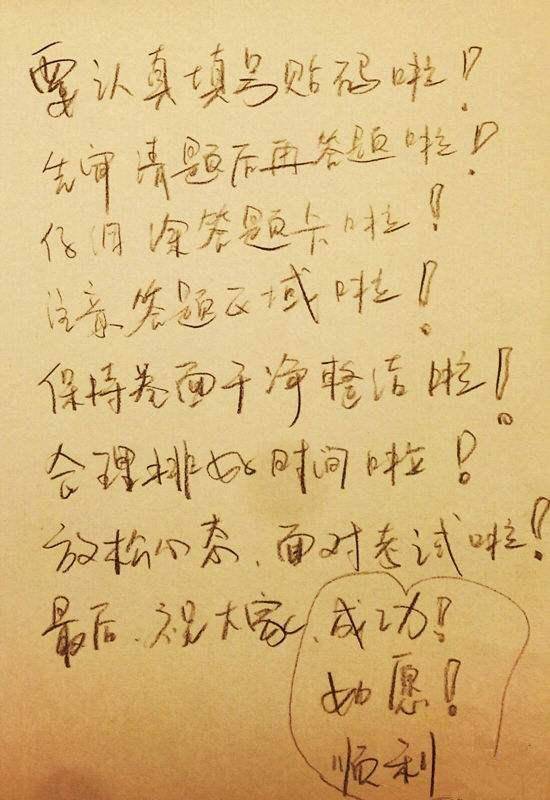 要认真填号贴码啦！
先审清题后再答题啦！
仔细涂答题卡啦！
注意答题区域啦！
保持卷面干净整洁啦！
合理排好时间啦！
放松心态、面对考试啦！
最后、祝大家、成功！
如愿！
顺利